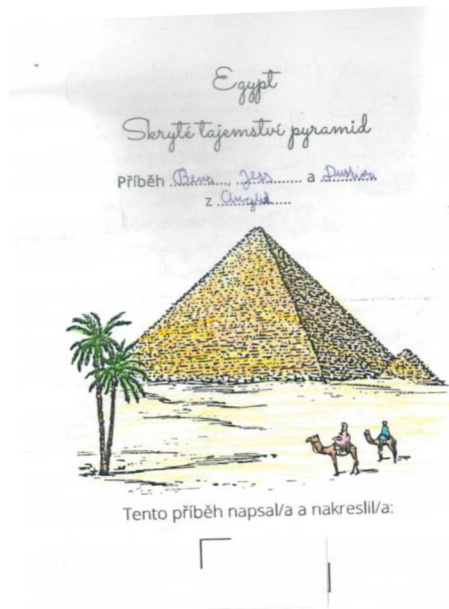 Egypt
Skryté tajemství pyramid
Příběh Bena, Jess a Dustina
z Anglie
Tento příběh napsal/a a nakreslil/a: